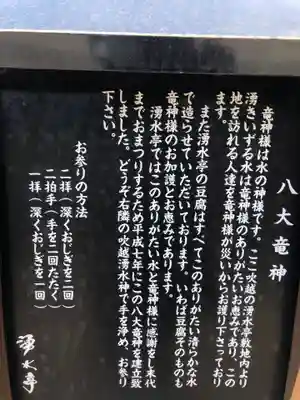 八大竜神
竜神様は水の神様です。ここ吹越の湧水亭敷地内より
湧きいずる水は竜神様のありがたいお恵みであり、この
地を訪れる人達を竜神様が災いからお護り下さっており
ます。
また湧水亭の豆腐はすべてこのありがたい清らかな水
で造らせていただいております。いわば豆腐そのものも
竜神様のお加護とお恵みであります。
湧水亭ではこのありがたい水と竜神様に感謝をし末代
までおまつりするため平成七年にこの八大竜神を建立致
しました。どうぞ右隣の吹越湧水神で手を浄め、お参り
下さい。
お参りの方法
二拝(深くおじぎを二回)
二拍手(手を二回たたく)
一拝(深くおじぎを一回)
湧水亭